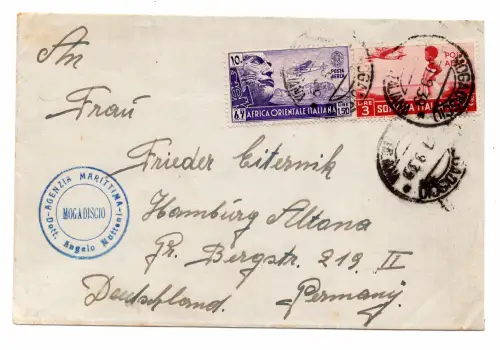 An
Frau
Frieder Citernik
Hamburg Altona
Gr. Bergstr. 219 II
Deutschland. Germany.
AGENZIA MARITTIMA
MOGADISCIO
Dott. Angelo
10
POSTA AEREA
AFRICA ORIENTALE ITALIANA
LIRE 1,50
POSTA AEREA
LIRE 3 SOMALIA ITALIANA
MOGADISCIO
7 9 39